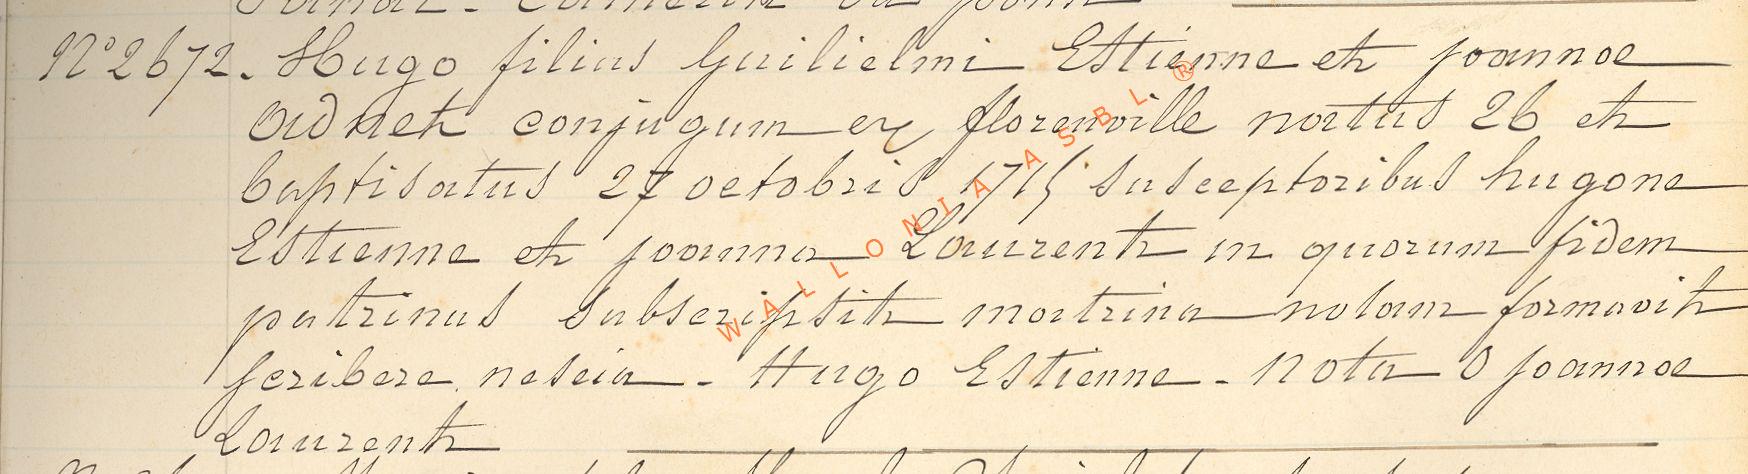 N° 2672. Hugo filius Guilielmi Estienne et joannae
Adnet conjugum ex florenville natus 26 et
baptisatus 27 octobris 1715 susceptoribus hugone
Estienne et joanna Laurent in quorum fidem
patrinus subscripsit matrina notam formavit
scribere nescia - Hugo Estienne - Nota O joannae
Laurent
WALLONIA ASBL ®